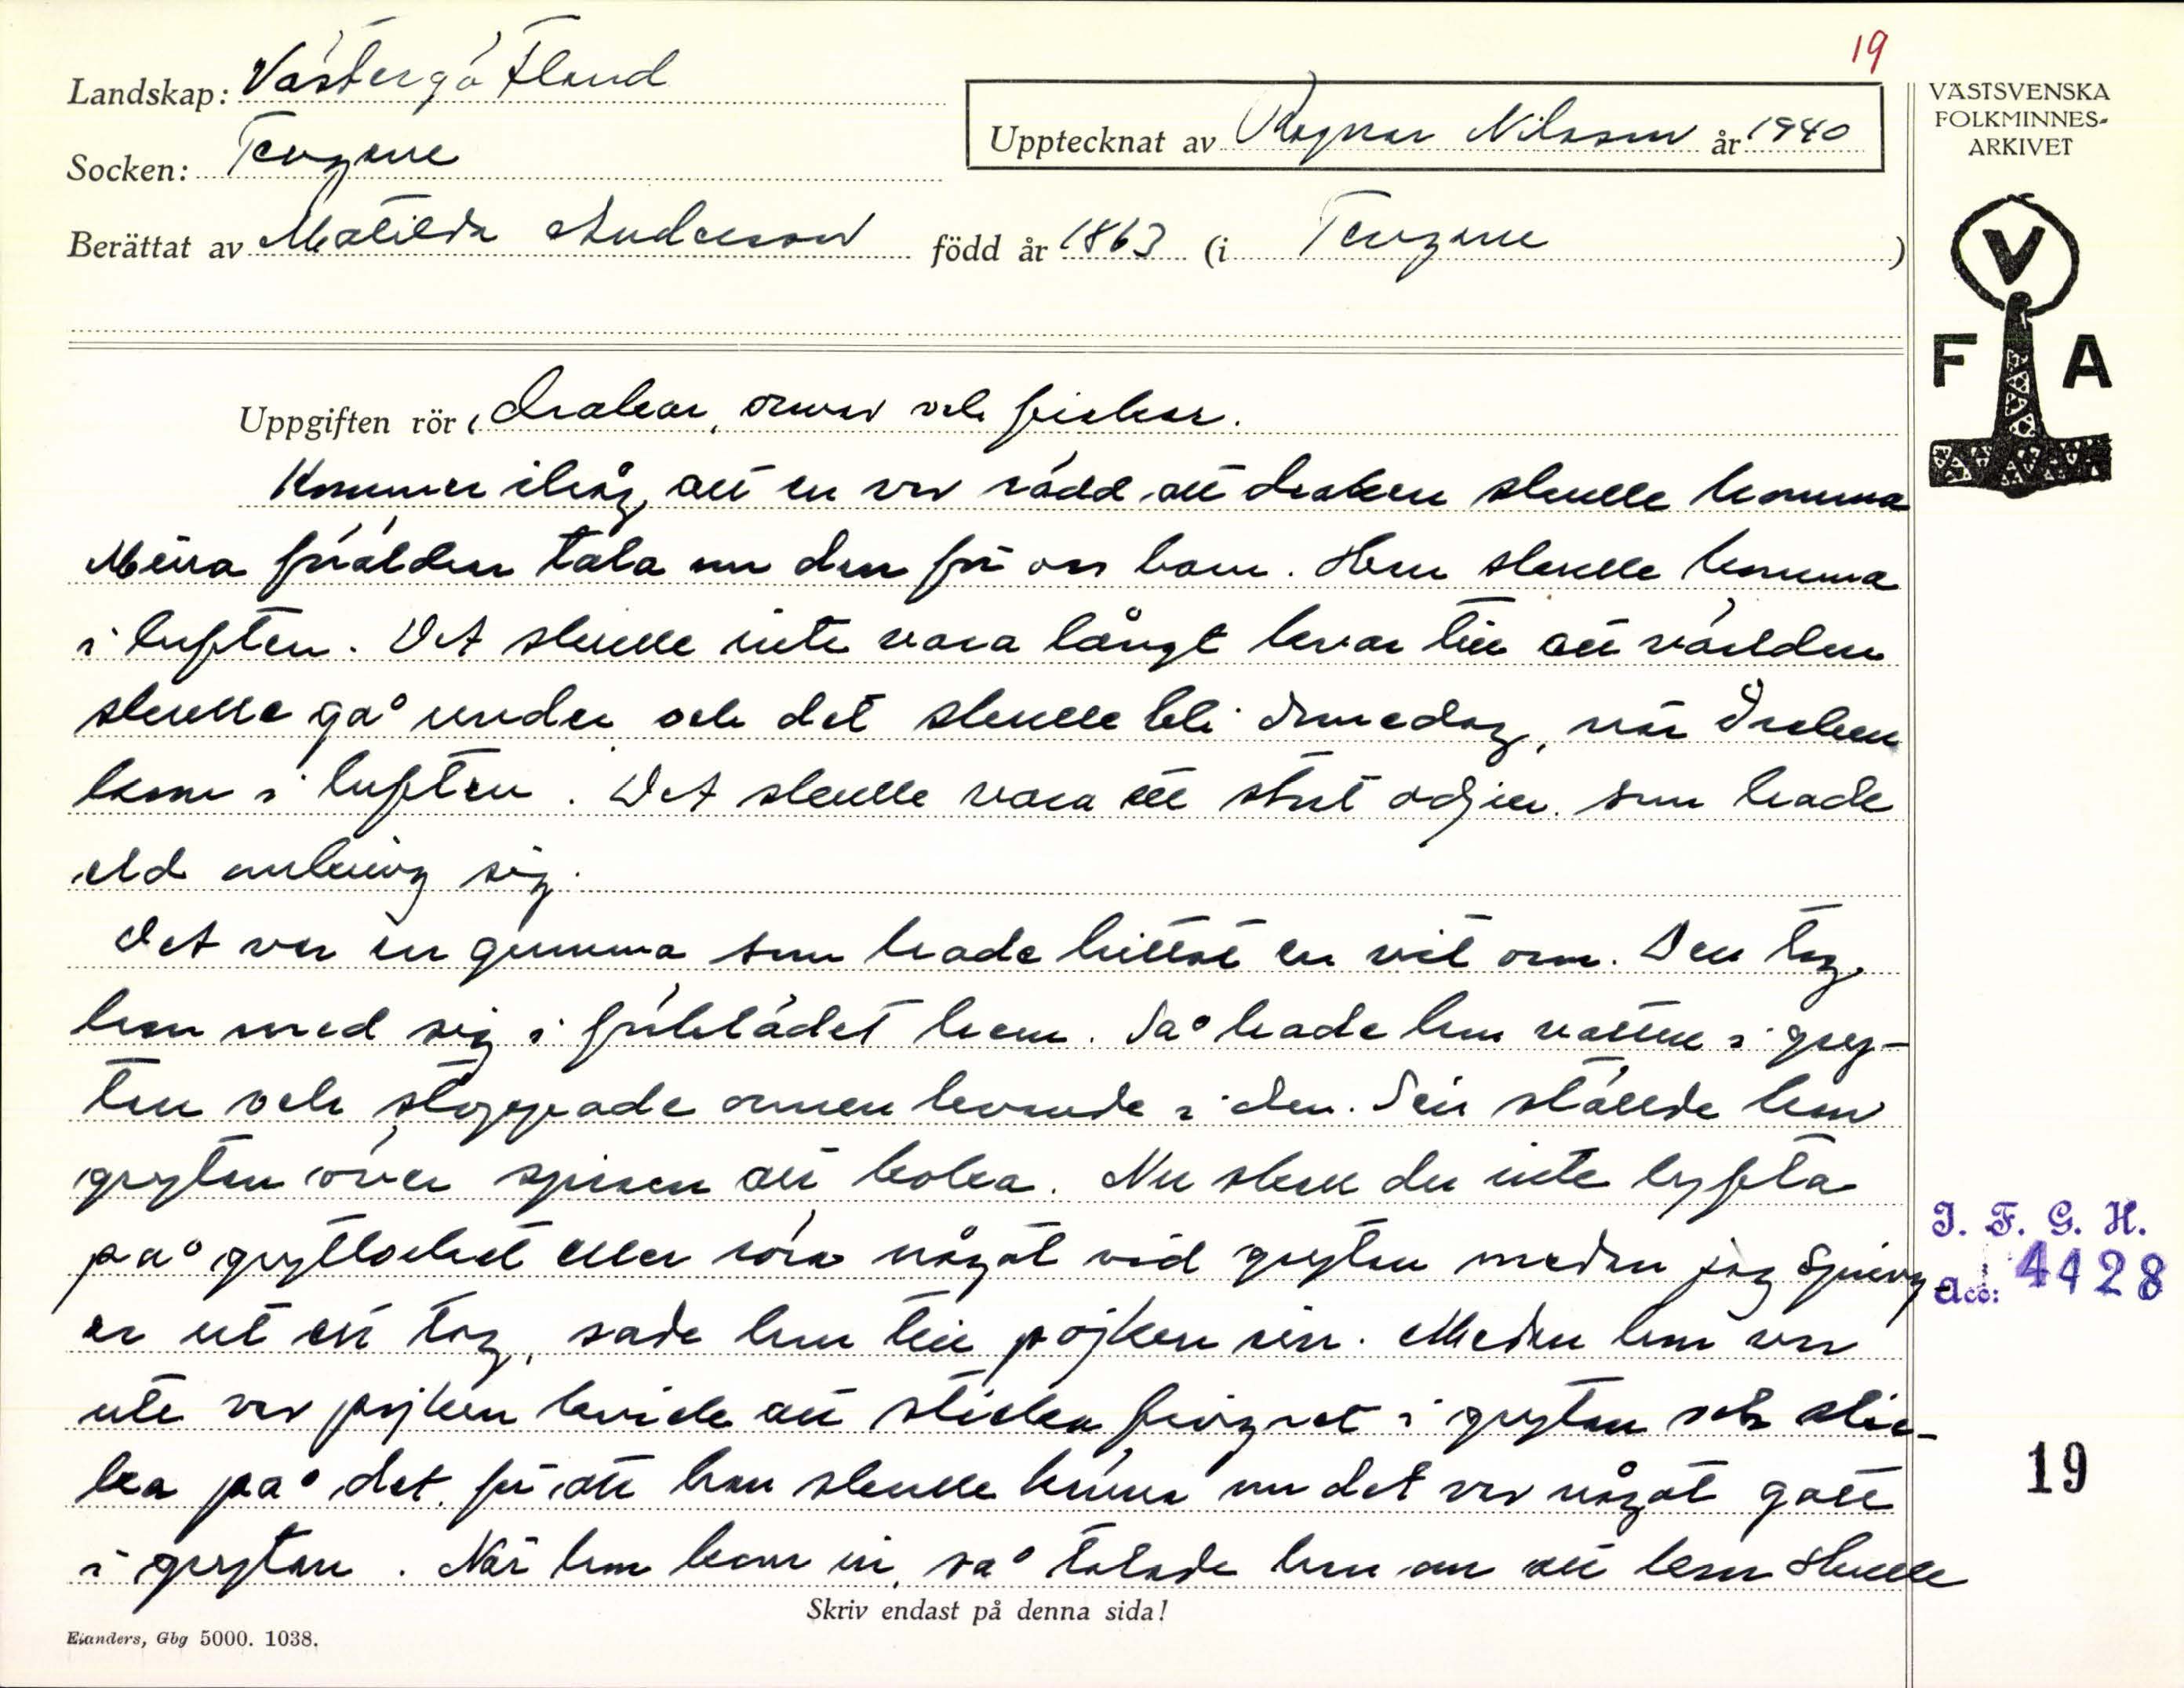 19
Landskap: Västergötland
Socken: Tengene
Upptecknat av Ragnar Nilsson år 1940
Berättat av Matilda Andersson född år 1863 (i Tengene)
VÄSTSVENSKA
FOLKMINNES-
ARKIVET
V
F A
Uppgiften rör Drakar, ormar och fiskar.
Kommer ihåg, att en var rädd att draken skulle komma
Mina föräldrar tala om den för oss barn. Han skulle komma
i luften. Det skulle inte vara långt kvar till att världen
skulle gå under och det skulle bli domedag, när draken
kom i luften. Det skulle vara ett stort odjur som hade
eld omkring sig.
Det var en gumma som hade hittat en vit orm. Den tog
hon med sig i förklädet hem. Så hade hon vatten i gry-
tan och stoppade ormen levande i den. Sen ställde hon
grytan över spisen att koka. Nu skall du inte lyfta
på grytlocket eller röra något vid grytan medan jag spring-
er ut ett tag, sade hon till pojken sin. Medan hon var
ute var pojken kvick att sticka fingret i grytan och slic-
ka på det för att han skulle känna om det var något gott
i grytan. När hon kom in, så talade hon om att hon skulle
Skriv endast på denna sida!
Elanders, Gbg 5000. 1038.
I. F. G. H.
Acc: 4428
19